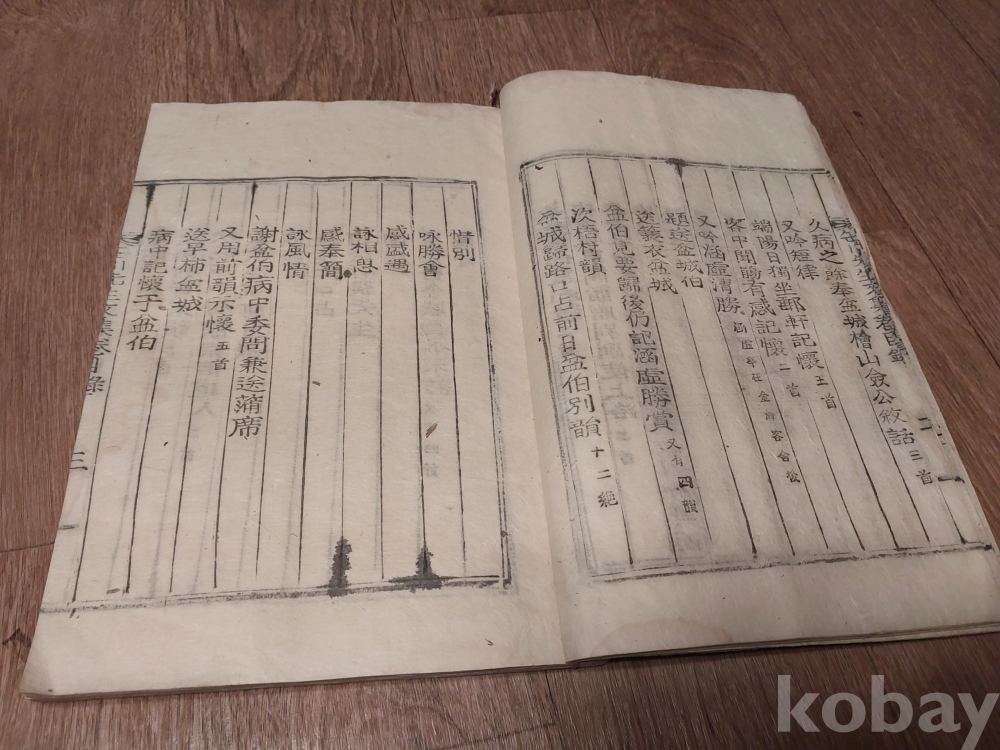 久病之餘奉盆城檜山僉公敘話 三首
又吟短律
端陽日獨坐郵軒記懷 二首
客中聞鵩有感記懷 二首
又吟涵虛淸勝 涵虛亭在金海客舍後
題送盆城伯
送義衣盆城
盆伯見要歸後仍記涵虛勝賞 又有四韻
次梧村韻
盆城歸路口占前日盆伯別韻 十二絶
惜別
咏勝會
感盛遇
詠相思
感奉簡
詠風情
謝盆伯病中委問兼送蒲席
又用前韻示懷 五首
送早柿盆城
病中記懷于盆伯
kobay